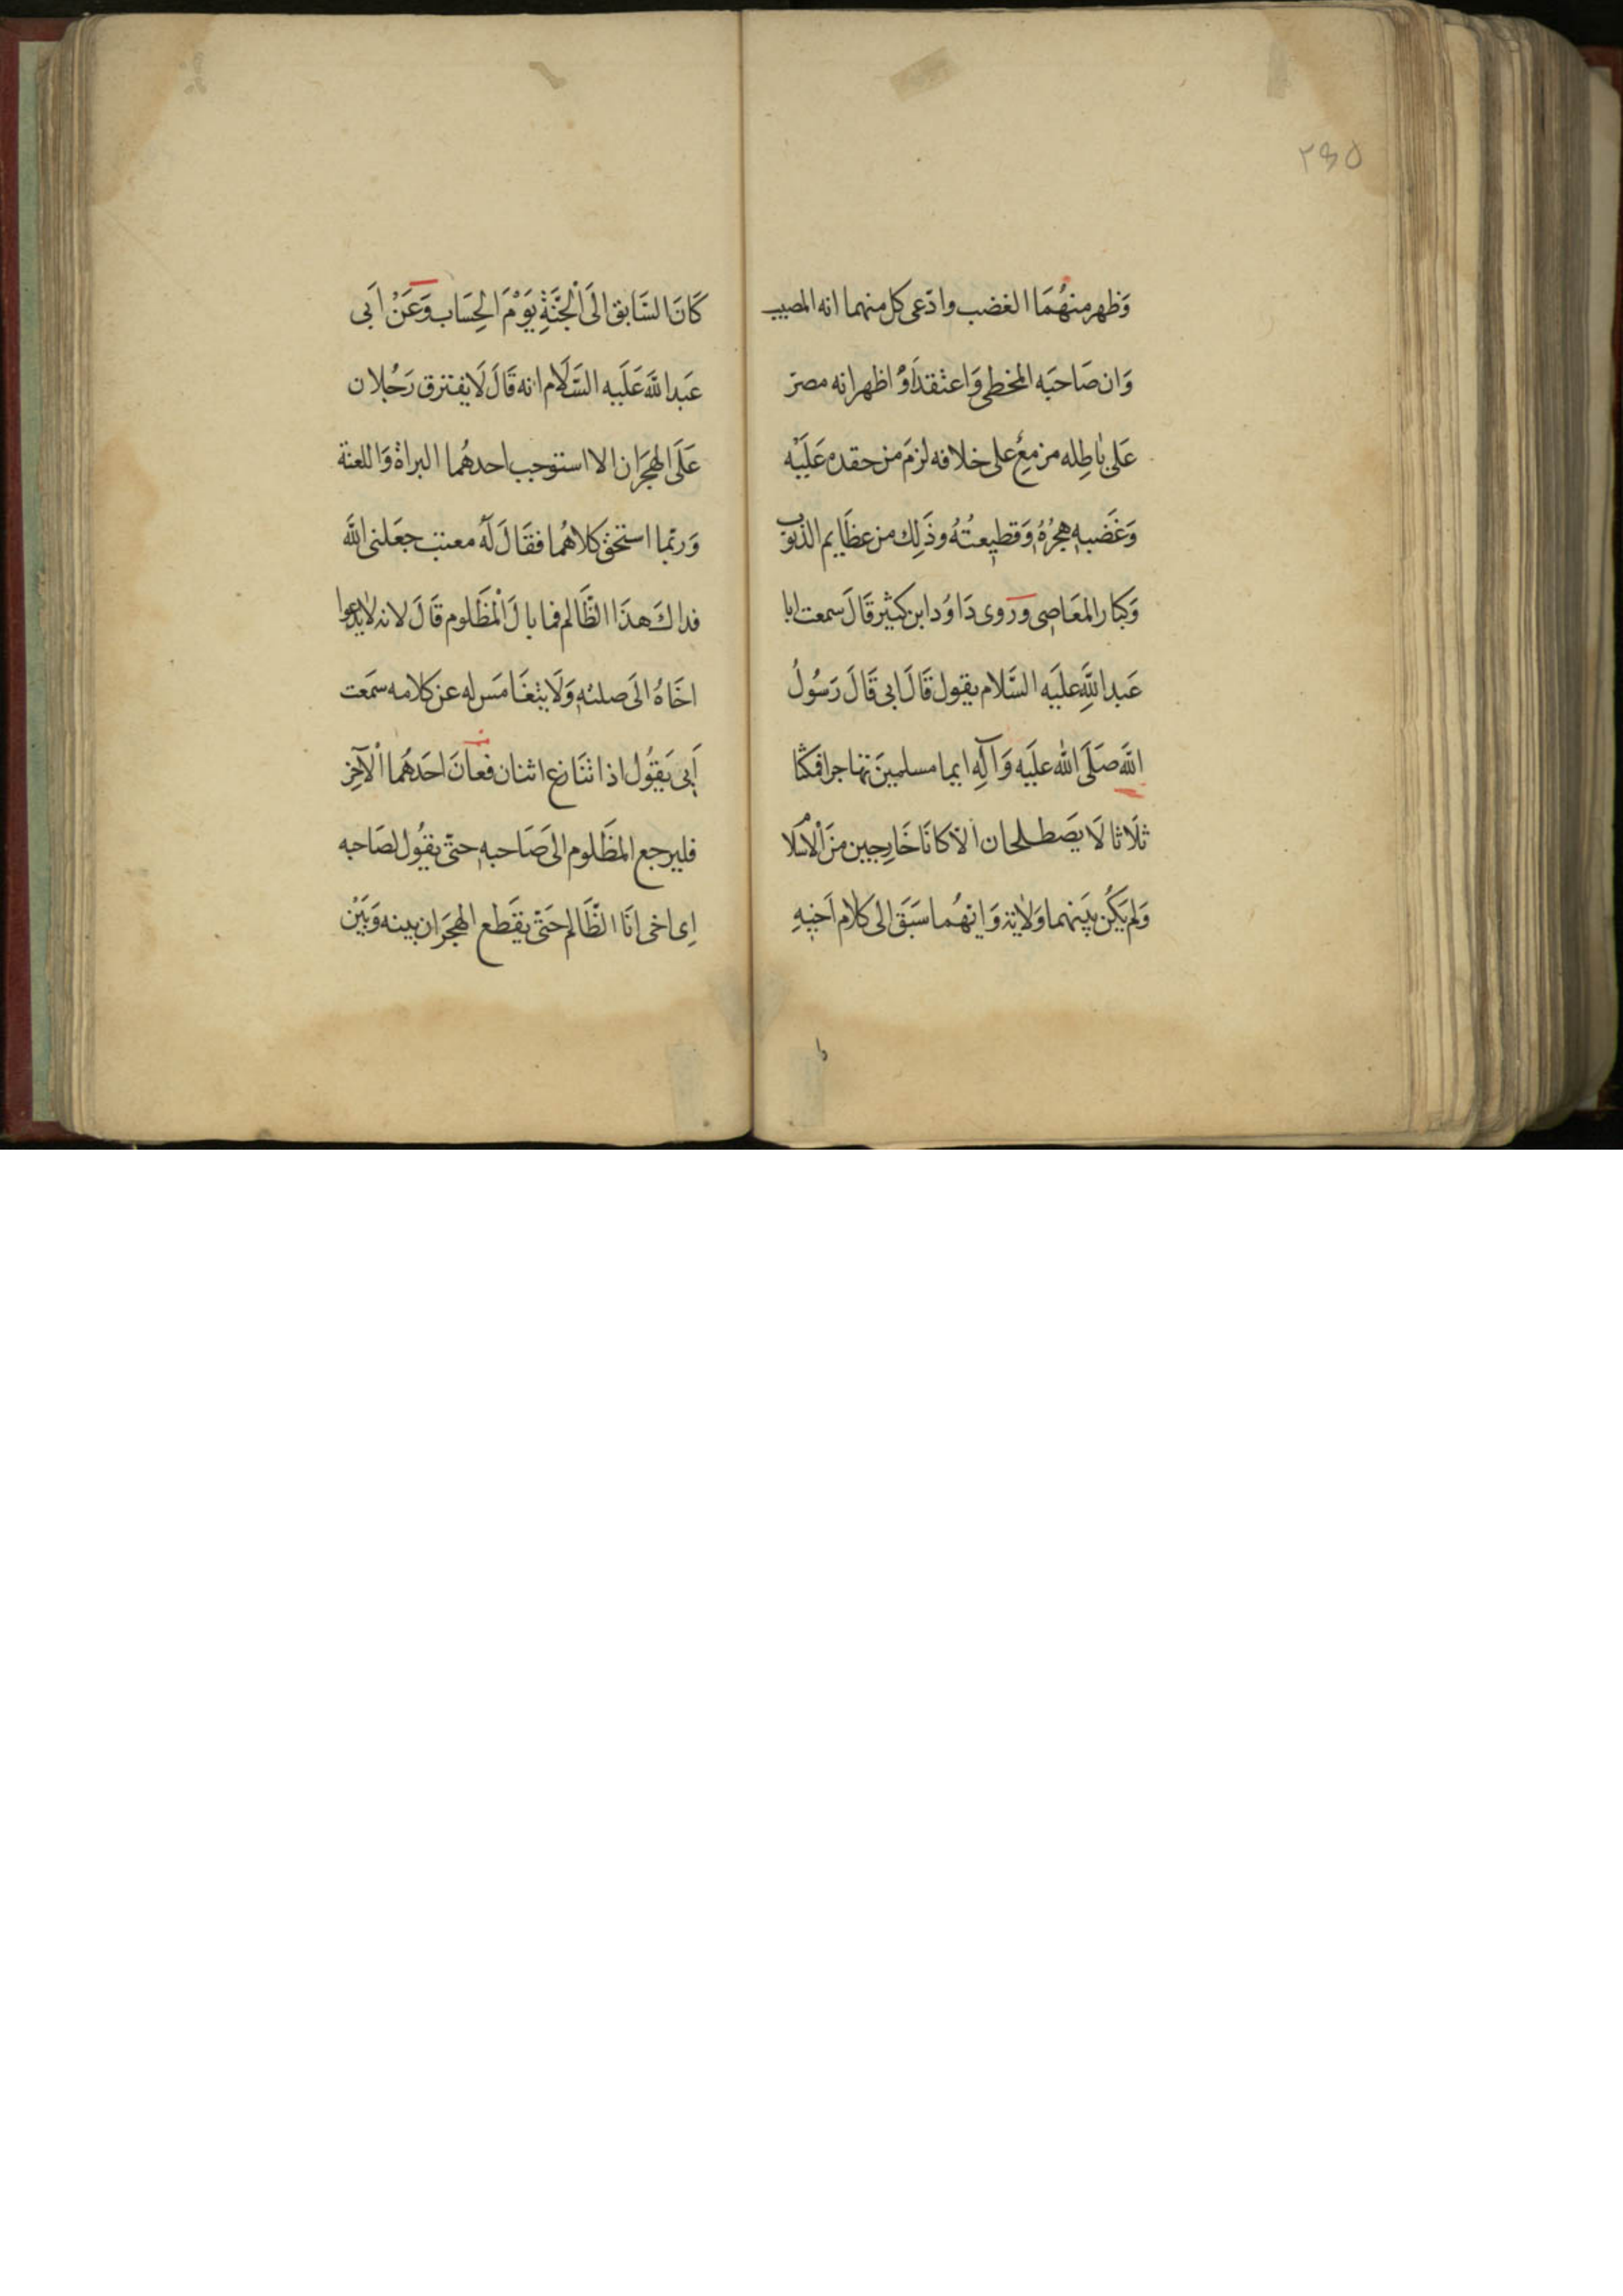 ٢٤٥
وَظهر منهُمَا الغضب وادّعى كل منهما انه المصيب
وَان صَاحبَه المخطى وَاعتقدَ اوْ اظهر انه مصرّ
عَلى بٰاطِله مزمعٌ على خلافه لزمَ من حقده عَلَيْه
وَغَضبهِ هجرُهُ وَقطيعتُهُ وذَلِك من عظَايم الذنوب
وَكبار المعَاصِى وَرَوى دَاوُد ابن كثير قَالَ سمعت ابا
عَبد اللَّهِ علَيَه السَّلام يقول قَالَ ابى قَالَ رَسُولُ
اللَّه صَلَى اللَّه علَيَه وَآلِهِ ايما مسلمينَ تهاجرا فمكثا
ثلَاثا لَا يَصَطلحان الّا كانَا خَارِجيين منَ الْاسْلا
وَلم يَكُن بيَنهما وَلايَة وَايهُما سَبَقَ الى كلام اَخيهِ
كَانَ السَّابق الَى اَلْجَنَّةِ يَوْمَ الحِسَاب وَعَنْ اَبى
عَبد اللَّه عَلَيه السَّلَام انه قَالَ لَا يفترق رَجُلان
عَلَى الهجَران الا استوجب احدهُما البراة وَاللعنة
وَربّما استحَق كلاهُما فقَالَ لَهُ معتب جعَلنى اللَّه
فداكَ هذَا الظَّالم فما بالَ اْلمَظَلوم قَالَ لانه لا يدعوا
اخَاهُ الَى صلته وَلَا يتغَامَس له عن كلامه سمَعت
اَبى يَقوُل اذا تنَازع اثنان فعاَنَ احَدهُما الْآخِر
فليرجع المظَلوم الىَ صَاحبهِ حتّى يقوُل لصَاحبه
اِى اخى انَا الظَّالم حَتّى يقَطع الهجَران بينه وَبيَنْ